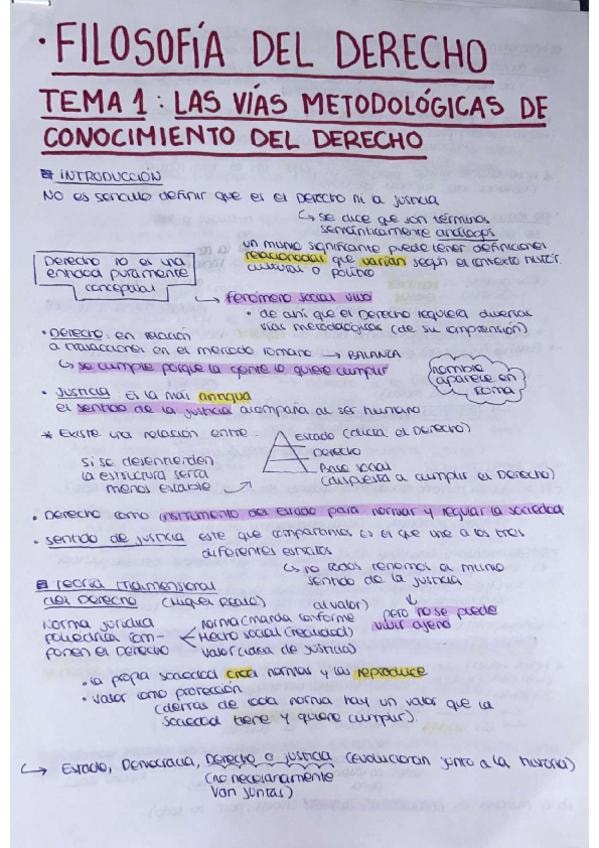 · FILOSOFÍA DEL DERECHO
TEMA 1: LAS VÍAS METODOLÓGICAS DE
CONOCIMIENTO DEL DERECHO
INTRODUCCIÓN
NO es sencillo definir que es el Derecho ni a justicia
↳ se dice que son términos
semánticamente análogos
un mismo significante puede tener definiciones
relacionadas que varían según el contexto
cultural o político
Derecho no es una
entidad puramente
conceptual
↳ fenómeno social vivo
• de ahí que el Derecho requiera diversas
vías metodológicas (de su comprensión)
• Derecho: en relación
a transacciones en el mercado romano → BALANZA
↳ se cumple porque la gente lo quiere cumplir
nombre
aparece en
Roma
• Justicia: Es la más antigua
el sentido de la justicia acompaña al ser humano
* Existe una relación entre:
Estado (dicta el Derecho)
Derecho
Base social
(dispuesta a cumplir el Derecho)
si se desentienden
la estructura sería
menos estable
• Derecho como instrumento del estado para normar y regular la sociedad
• sentido de justicia este que compartimos es el que une a los tres
diferentes estratos
↳ no todos tenemos el mismo
sentido de la justicia
↓
pero no se puede
vivir ajeno
Teoría tridimensional
del Derecho (Miguel Reale)
al valor)
Norma jurídica
poliédrica com-
ponen el Derecho
Norma (manda conforme
Hecho social (realidad)
Valor (idea de justicia)
• la propia sociedad crea normas y las reproduce
• valor como protección
(detrás de toda norma hay un valor que la
sociedad tiene y quiere cumplir).
↳ Estado, Democracia, Derecho o justicia (evolucionan junto a la historia)
(no necesariamente
van juntas)